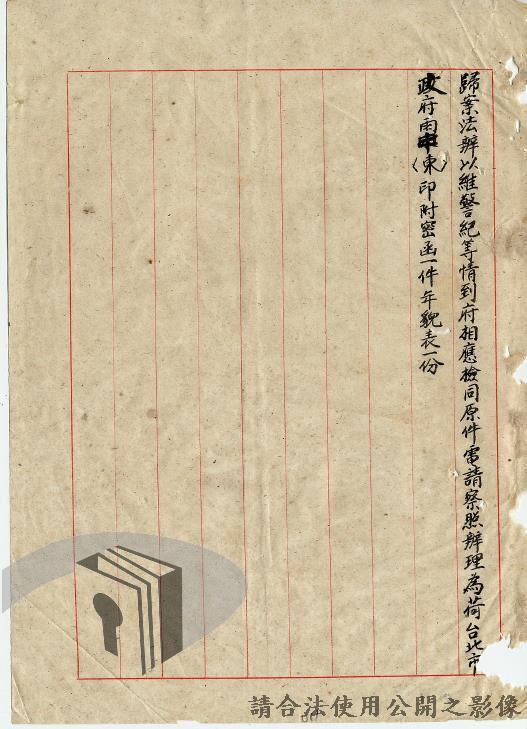 歸案法辦以維警紀等情到府相應檢同原件電請察照辦理為荷台北市
政府雨申(東)印附密函一件年貌表一份
請合法使用公開之影像